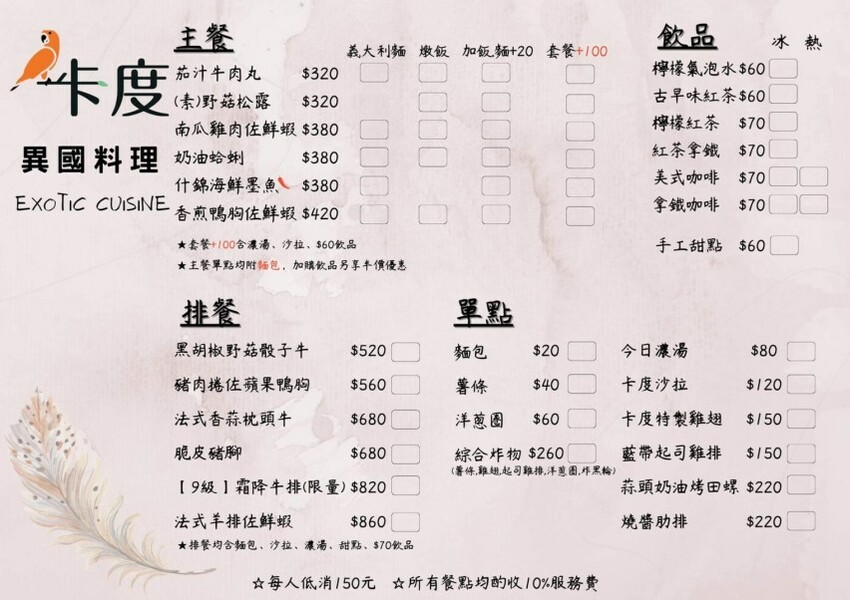 卡度
異國料理
EXOTIC CUISINE
主餐 義大利麵 燉飯 加飯,麵+20 套餐+100
茄汁牛肉丸 $320
(素)野菇松露 $320
南瓜雞肉佐鮮蝦 $380
奶油蛤蜊 $380
什錦海鮮墨魚 $380
香煎鴨胸佐鮮蝦 $420
★套餐+100含濃湯、沙拉、$60飲品
★主餐單點均附麵包，加購飲品另享半價優惠
飲品 冰 熱
檸檬氣泡水 $60
古早味紅茶 $60
檸檬紅茶 $70
紅茶拿鐵 $70
美式咖啡 $70
拿鐵咖啡 $70
手工甜點 $60
排餐
黑胡椒野菇骰子牛 $520
豬肉捲佐蘋果鴨胸 $560
法式香蒜枕頭牛 $680
脆皮豬腳 $680
【9級】霜降牛排(限量) $820
法式羊排佐鮮蝦 $860
★排餐均含麵包、沙拉、濃湯、甜點、$70飲品
單點
麵包 $20
薯條 $40
洋蔥圈 $60
綜合炸物 $260
(薯條,雞翅,起司雞排,洋蔥圈,炸黑輪)
今日濃湯 $80
卡度沙拉 $120
卡度特製雞翅 $150
藍帶起司雞排 $150
蒜頭奶油烤田螺 $220
燒醬肋排 $220
☆每人低消150元 ☆所有餐點均酌收10%服務費